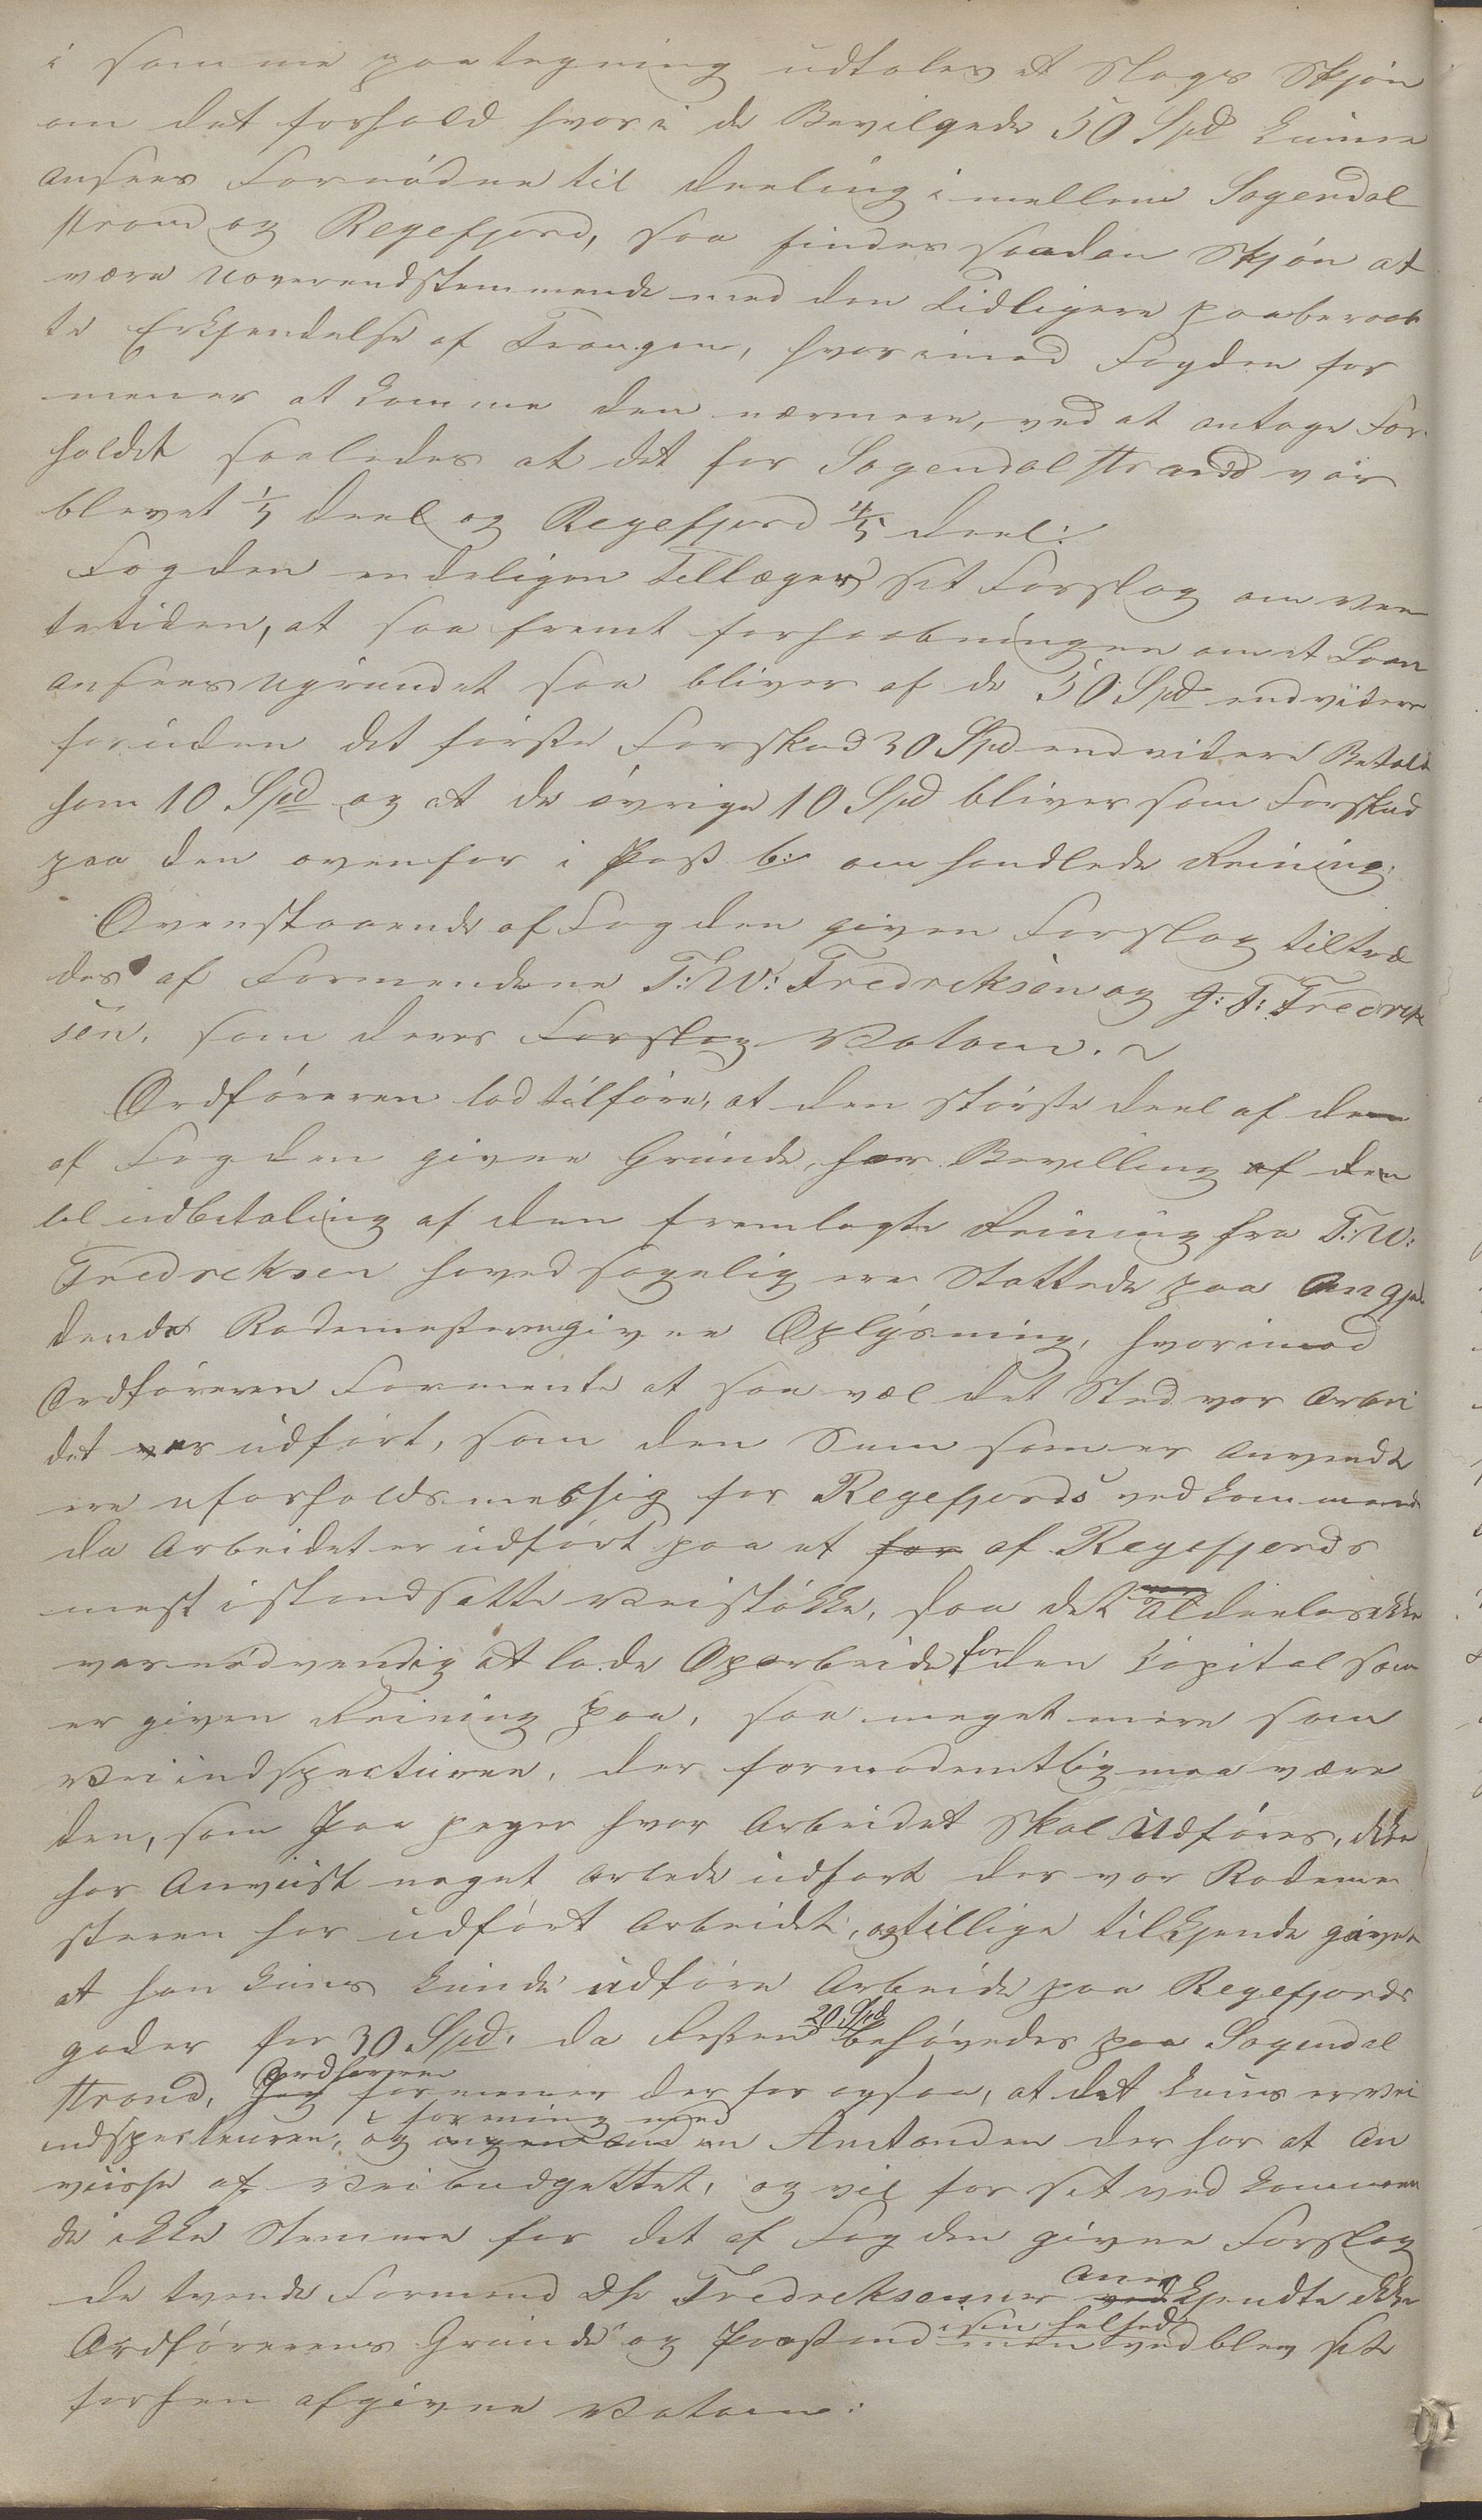 i samme paategning udtales et Slags Skjøn
om det forhold hvori de Bevilgede 50 Spd kunne
ansees Fornødne til deeling i mellem Sogendal
strand og Regefjord, saa findes saadan Skjøn at
være uoverendstemmende med den Tidligere paaberaab
te Erkjendelse af Trangen, hvorimod Fogden for
mener at komme den nærmere, ved at antage For
holdet saaledes at det for Sogendalstrand var
blevet 1/5 deel og Regefjord 4/5 deel:
Fogden endeligen Tillæger sit Forslag om
tetiden, at saa fremt forhaabningen om et Laan
ansees ugrundet saa bliver af de 50 Spd endvidere
foruden det første Forskud 30 Spd endvidere Betalt
ham 10 Spd og at de øvrige 10 Spd bliver som Forskud
paa den ovenfor i Post b: om handlede Reining:
Ovenstaaende af Fogden given Forslag tiltræ
des af Formendene T: W: Fredreksen og J: T: Fredrek
sen, som deres Forslag Votum.
Ordføreren lod tilføre, at den største deel af dem
af Fogden givne Grunde, for Bevilling af den
til udbetaling af den fremlagte Reining fra T: W:
Fredreksen hovedsagelig ere Støttede paa Angje
dende Rodemesteren givne Oplysning, hvorimod
Ordføreren Formente at saa vel det Sted vor Arbei
det er udført, som den Sum som er anvendt
ere uforholdsmessig for Regefjords ved kommende
da Arbeidet er udført paa et for af Regefjords
mest istandsatte Veistøkke, saa det var aldeeles ikke
var nødvendig at lade Oparbeide for den Capital som
er given Reining paa, saa meget mere som
Vei indspecturen, der formodentlig maa være
den, som Paa peger hvor Arbeidet Skal Udføres, ikke
har Anviist noget Arbede udført der vor Rodeme
steren har udført Arbeidet, og tillige tilkjende givet
at han kuns kunde udføre Arbeide paa Regefjords
gader for 30 Spd, da Resten 20 Spd behøvedes paa Sogendal
strand, Jeg Ordføreren formener der for ogsaa, at det kuns er Vei
indspecteuren, og ingen i forening med en Amtanden der har at An
viisse af Veibudgettet, og vil for sit ved kommen
de ikke Stemme for det af Fogden givne Forslag
de tvende Formend Dhr Fredreksenner ved Ane kjendte ikke
Ordførerens Grunde og Paastand i sin helhed men vedblev sit
forhen afgivne Votum: